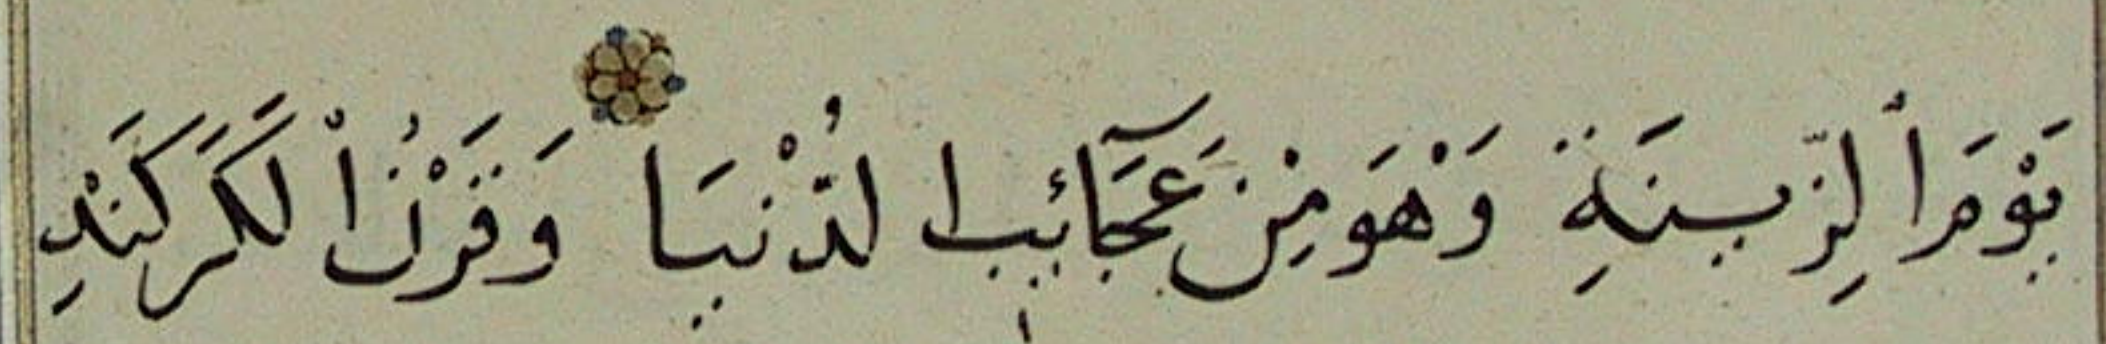 يَوْمَ اْلزِّينَةِ وَهْوَ مِنْ عَجَآئِبِ الدُّنْيَا وَقَرْنُ اْلكَرْكَنْدِ